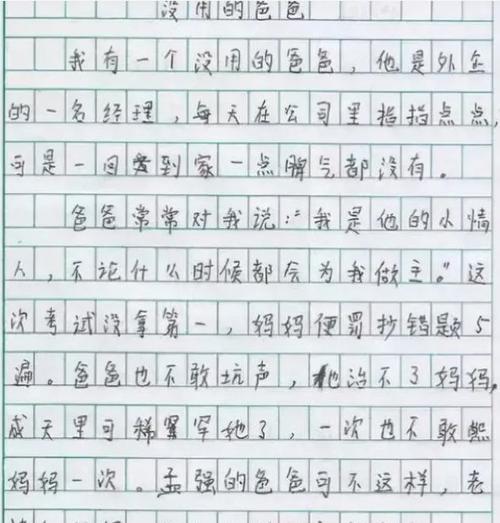 没用的爸爸
我有一个没用的爸爸，他是外企
的一名经理，每天在公司里指指点点，
可是一回到家一点脾气都没有。
爸爸常常对我说：“我是他的小情
人，不论什么时候都会为我做主。”这
次考试没拿第一，妈妈便罚抄错题5
遍。爸爸也不敢坑声，他治不了妈妈，
成天里可稀罕她了，一次也不敢惹
妈妈一次。孟强的爸爸可不这样，老